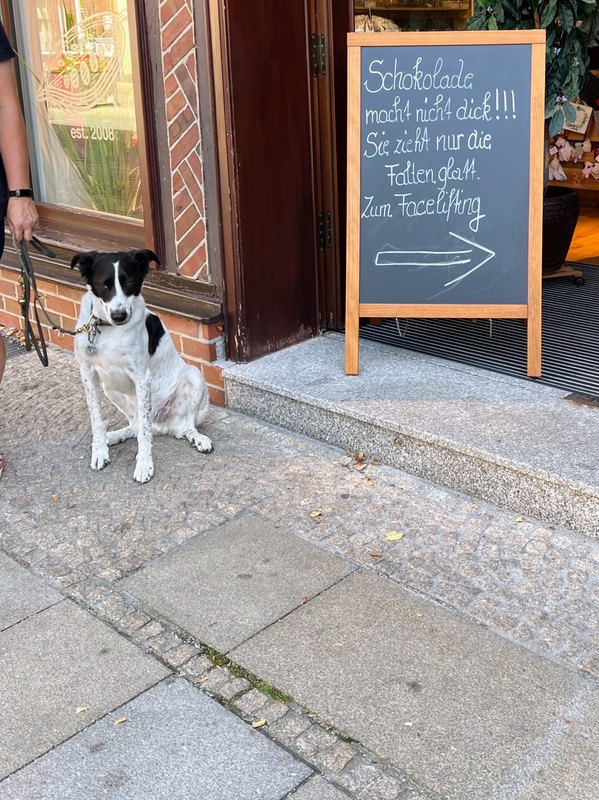 est. 2008
Schokolade
macht nicht dick!!!
Sie zieht nur die
Falten glatt.
Zum Facelifting